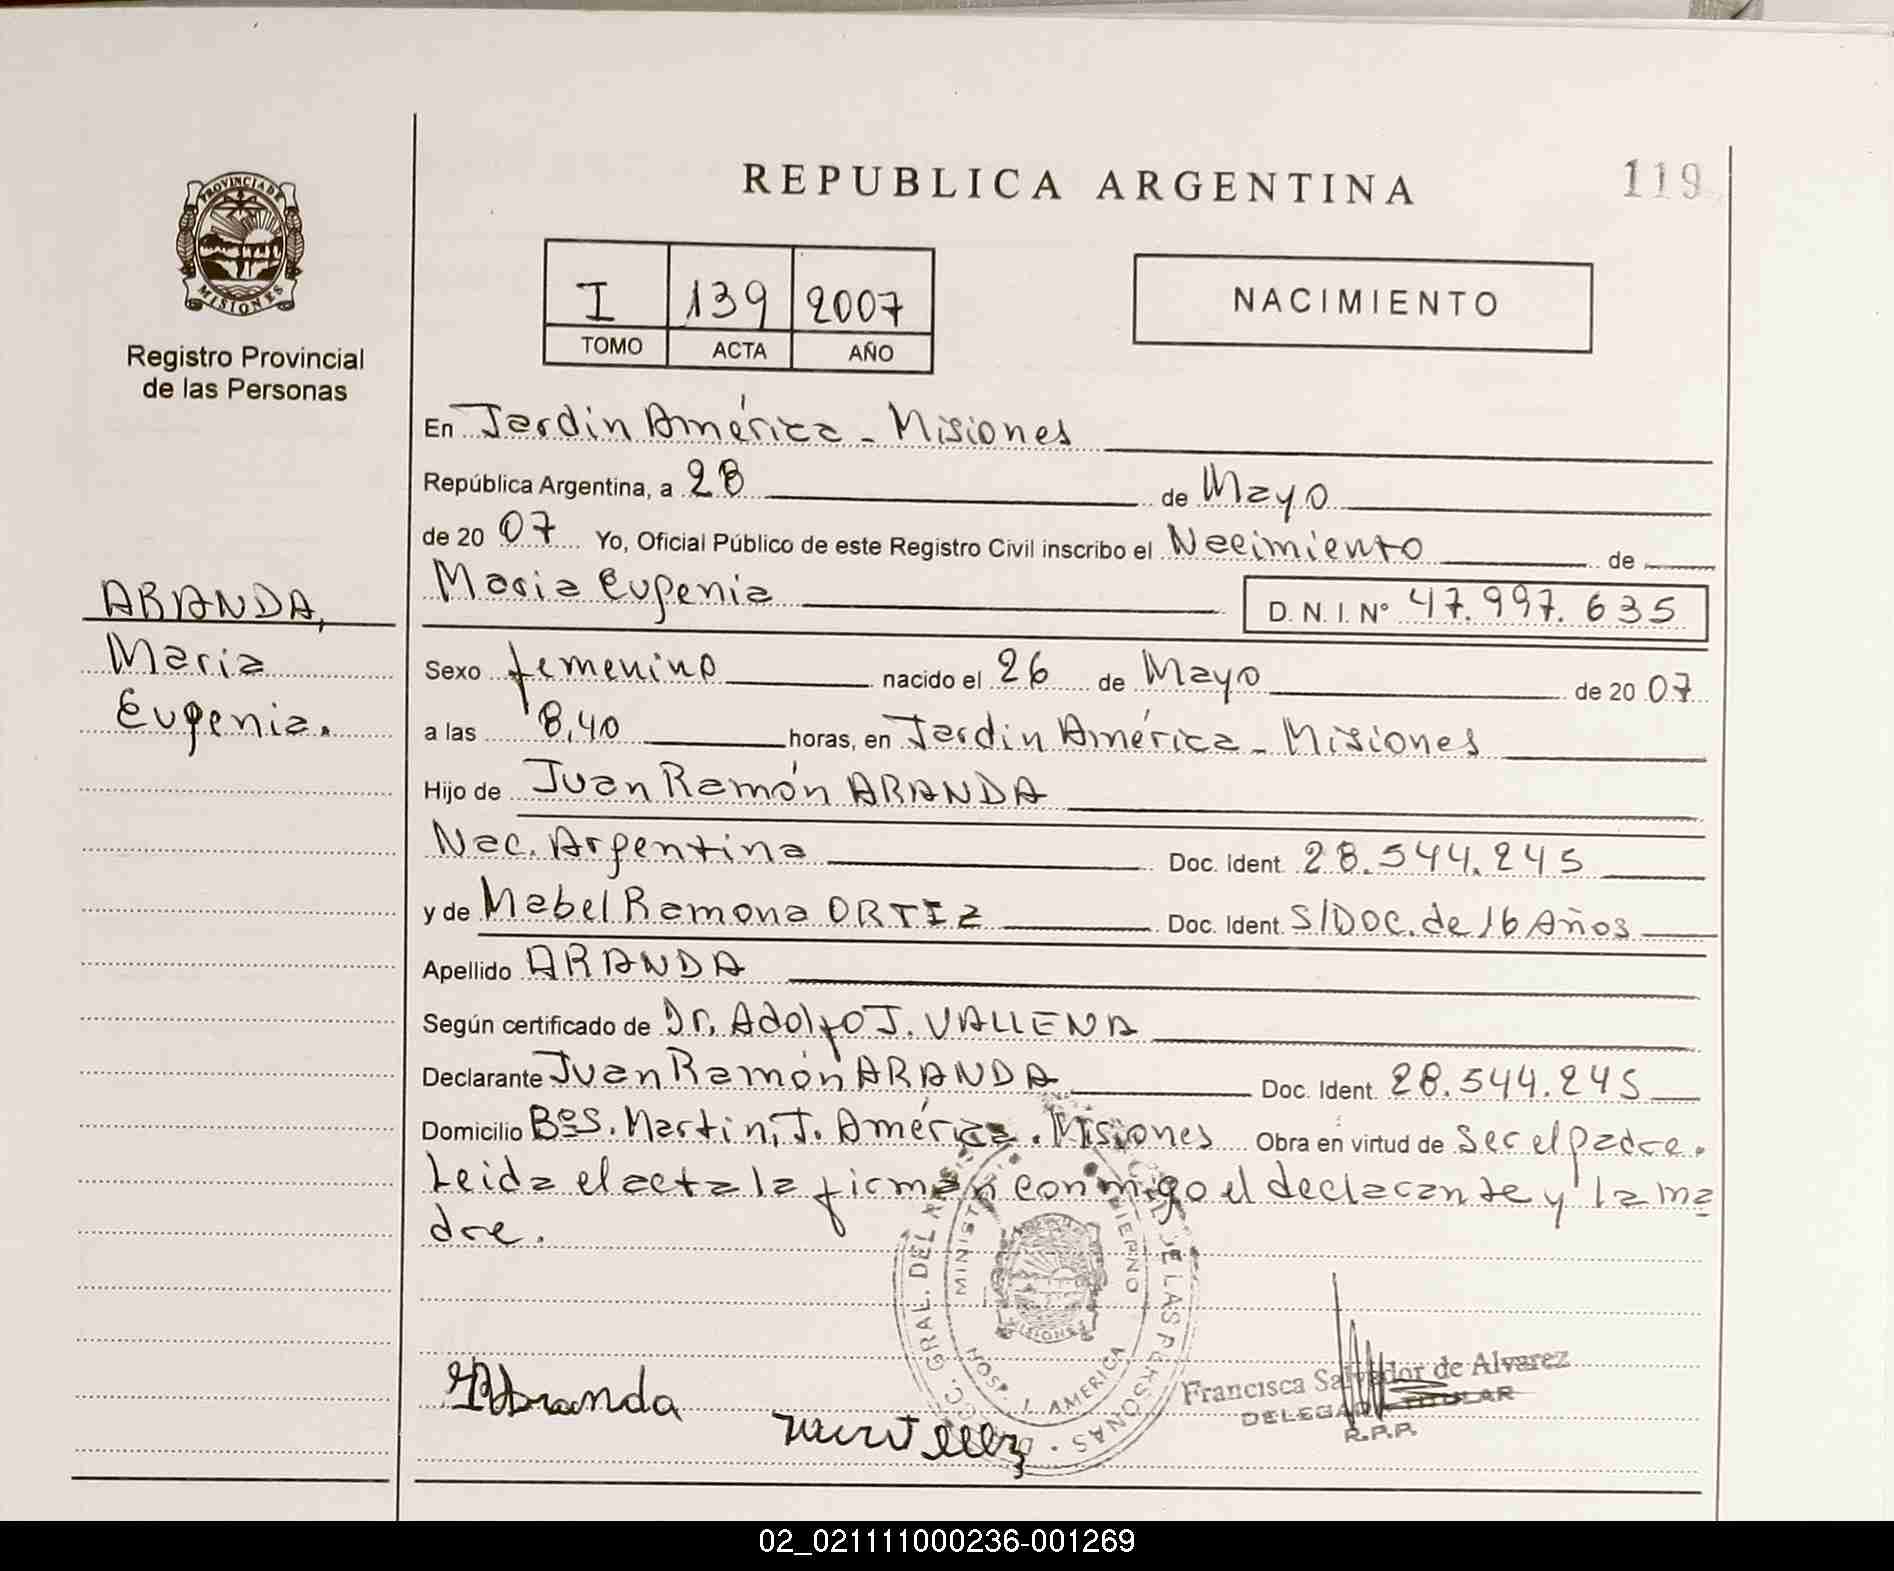 REPUBLICA ARGENTINA
119
PROVINCIA DE
MISIONES
Registro Provincial
de las Personas
I 139 2007
TOMO ACTA AÑO
NACIMIENTO
ARANDA,
Maria
Eugenia.
En Jardin América - Misiones
República Argentina, a 28 de Mayo
de 20 07 Yo, Oficial Público de este Registro Civil inscribo el Nacimiento de
Maria Eugenia D. N. I. Nº 47.997.635
Sexo femenino nacido el 26 de Mayo de 20 07
a las 8,40 horas, en Jardin América - Misiones
Hijo de Juan Ramón ARANDA
Nac. Argentina Doc. Ident. 28.544.245
y de Mabel Ramona ORTIZ Doc. Ident. S/DOC. de 16 Años
Apellido ARANDA
Según certificado de Dr. Adolfo J. VALLENA
Declarante Juan Ramón ARANDA Doc. Ident. 28.544.245
Domicilio Bº S. Martin, J. América. Misiones Obra en virtud de Ser el padre.
Leida el acta la firman conmigo el declarante y la ma
dre.
GRAL. DEL
DE LAS PERSONAS
MINIST
HOSP. J. AMERICA
MISIONES
Aranda
Francisca Salvador de Alvarez
DELEGADA TITULAR
R.P.P.
02_021111000236-001269